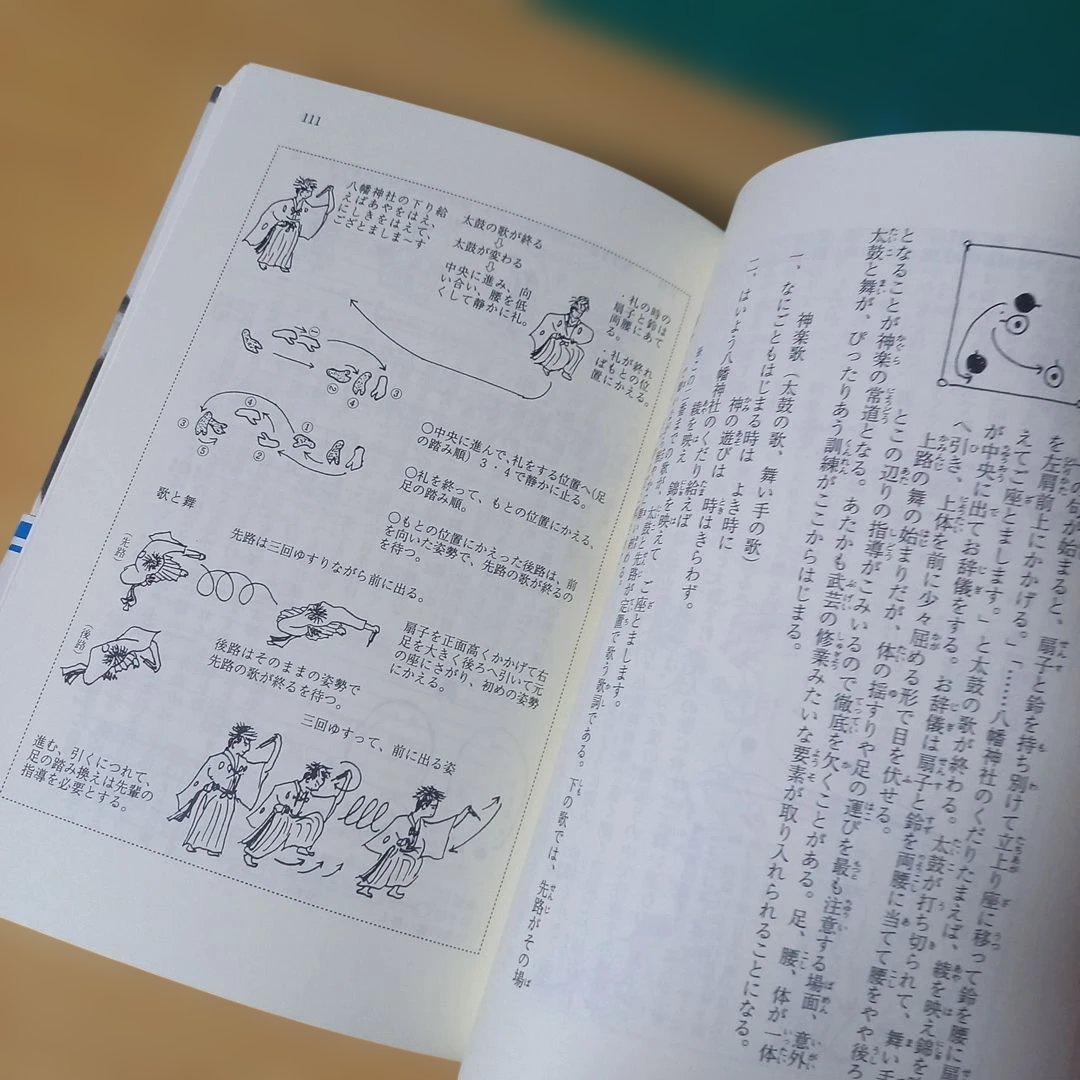 一の右が始まると、扇子と鈴を持ち別けて立上り座に移って鈴を腰に扇
を左肩前上にかかげる。」
えてご座とまします。」「……八幡神社のくだりたまえば、綾を映え錦を
が中央に出てお辞儀をする。」と太鼓の歌が終わる。太鼓が打ち切られて、舞い手
へ引き、上体を前に少々屈める形で目を伏せる。お辞儀は扇子と鈴を両腰に当てて腰をやや後ろ
上路の舞の始まりだが、体の揺すりや足の運びを最も注意する場面、意外
とこの辺りの指導がこみいるので徹底を欠くことがある。足、腰、体が一体
となることが神楽の常道となる。あたかも武芸の修業みたいな要素が取り入れられることになる。
太鼓と舞が、ぴったりあう訓練がここからはじまる。
神楽歌（太鼓の歌、舞い手の歌）
一、なにごともはじまる時は よき時に
神の遊びは 時はきらわず。
二、はいよう八幡神社のくだり給えば
綾を映え 錦を映えて ご座とまします。
下の歌では、先路がその場
111
八幡神社の下り給
えばあやをはえ、
にしきをはえて、
ござとましま〜す
太鼓の歌が終る
⇩
太鼓が変わる
⇩
中央に進み、向
い合い、腰を低
くして静かに礼。
・礼の時の鈴は
扇子と両腰にあ
る。
・礼が終れ
ばもとの位
置にかえる。
①
②
④
③
④
①
③
②
⑤
○中央に進んで、礼をする位置へ(足
の踏み順）3・4で静かに止る。
○礼を終って、もとの位置にかえる、
足の踏み順。
○もとの位置にかえった後路は、前
を向いた姿勢で、先路の歌が終るの
を待つ。
歌と舞
先路は三回ゆすりながら前に出る。
(先路)
扇子を正面高くかかげて右
足を大きく後ろへ引いて元
の座にさがり、初めの姿勢
にかえる。
(後路)
後路はそのままの姿勢で
先路の歌が終るを待つ。
三回ゆすって、前に出る姿
進む、引くにつれて、
足の踏み換えは先輩の
指導を必要とする。